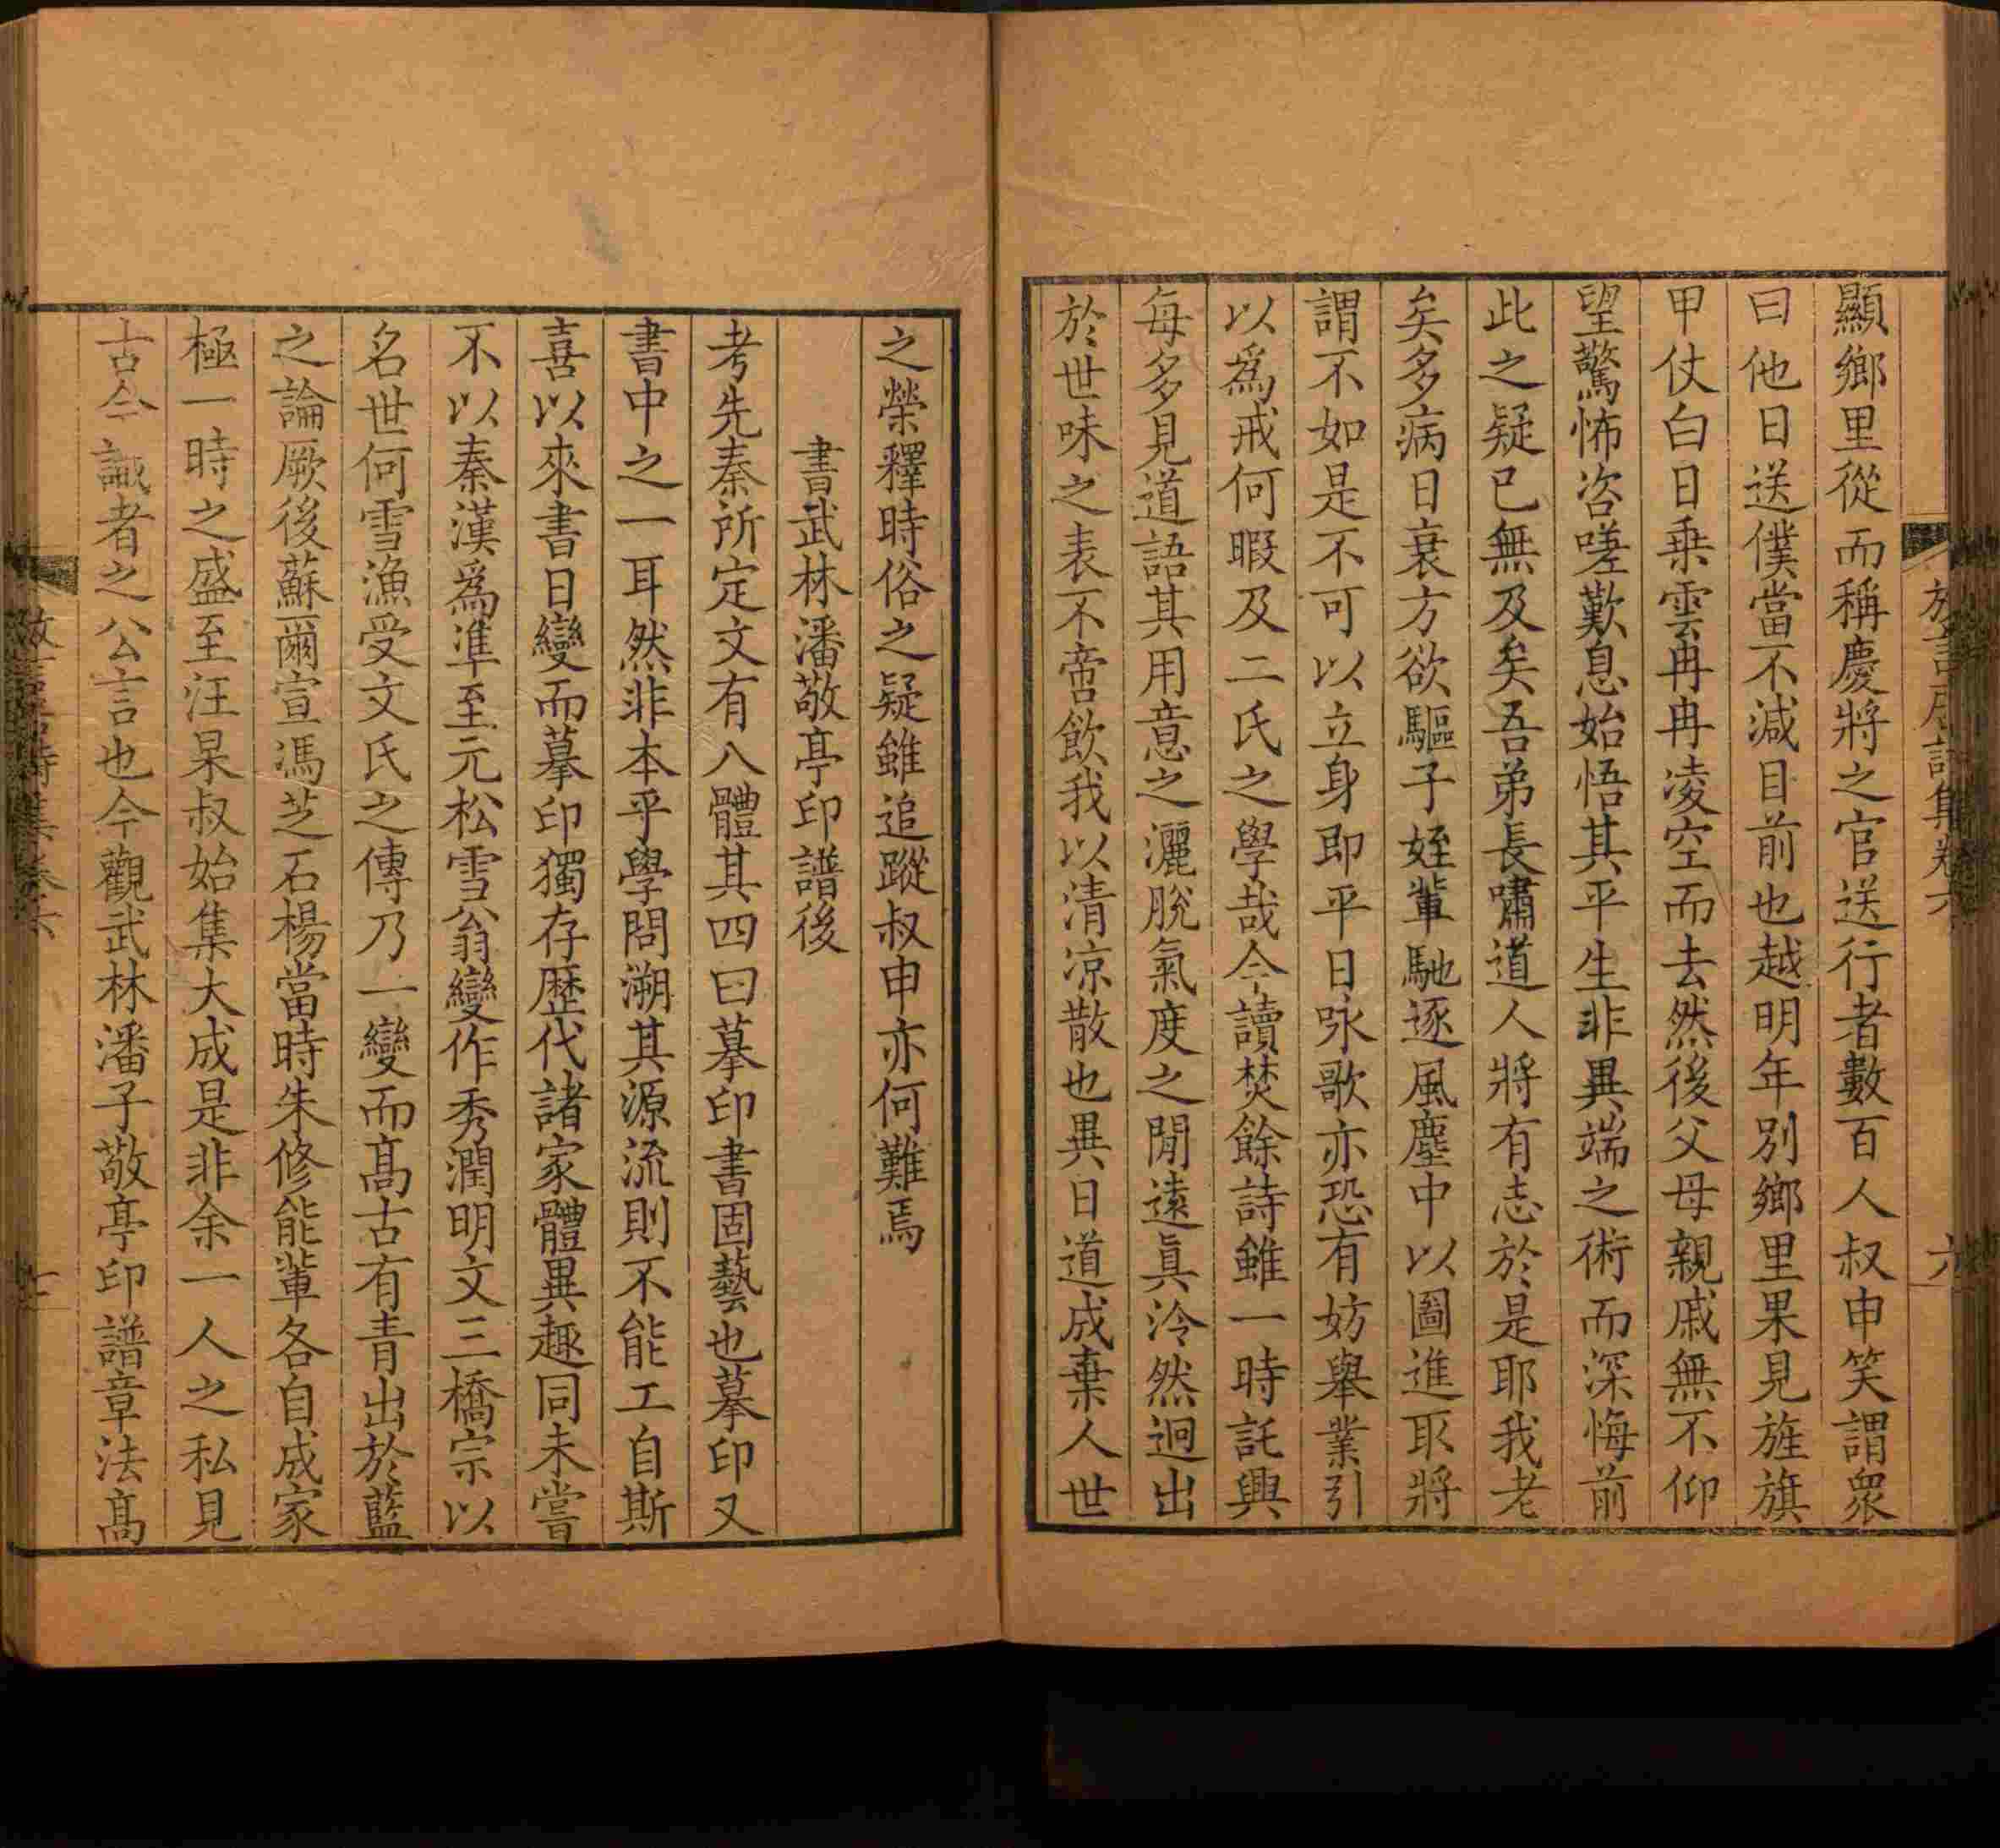 顯鄉里從而稱慶將之官送行者數百人叔申笑謂眾
曰他日送僕當不減目前也越明年別鄉里果見旌旗
甲仗白日乗雲冉冉凌空而去然後父母親戚無不仰
望驚怖咨嗟歎息始悟其平生非異端之術而深悔前
此之疑已無及矣吾弟長嘯道人將有志於是耶我老
矣多病日衰方欲驅子姪輩馳逐風塵中以圖進取將
謂不如是不可以立身即平日咏歌亦恐有妨舉業引
以爲戒何暇及二氏之學哉今讀焚餘詩雖一時託興
每多見道語其用意之灑脫氣度之閒遠眞泠然迥出
於世味之表不啻飲我以清凉散也異日道成棄人世
之榮釋時俗之疑雖追蹤叔申亦何難焉
書武林潘敬亭印譜後
考先秦所定文有八體其四曰摹印書固藝也摹印又
書中之一耳然非本乎學問溯其源流則不能工自斯
喜以來書日變而摹印獨存歷代諸家體異趣同未嘗
不以秦漢爲準至元松雪翁變作秀潤明文三橋宗以
名世何雪漁受文氏之傳乃一變而髙古有青出於藍
之論厥後蘇爾宣馮芝石楊當時朱修能輩各自成家
極一時之盛至汪杲叔始集大成是非余一人之私見
古今識者之公言也今觀武林潘子敬亭印譜章法髙